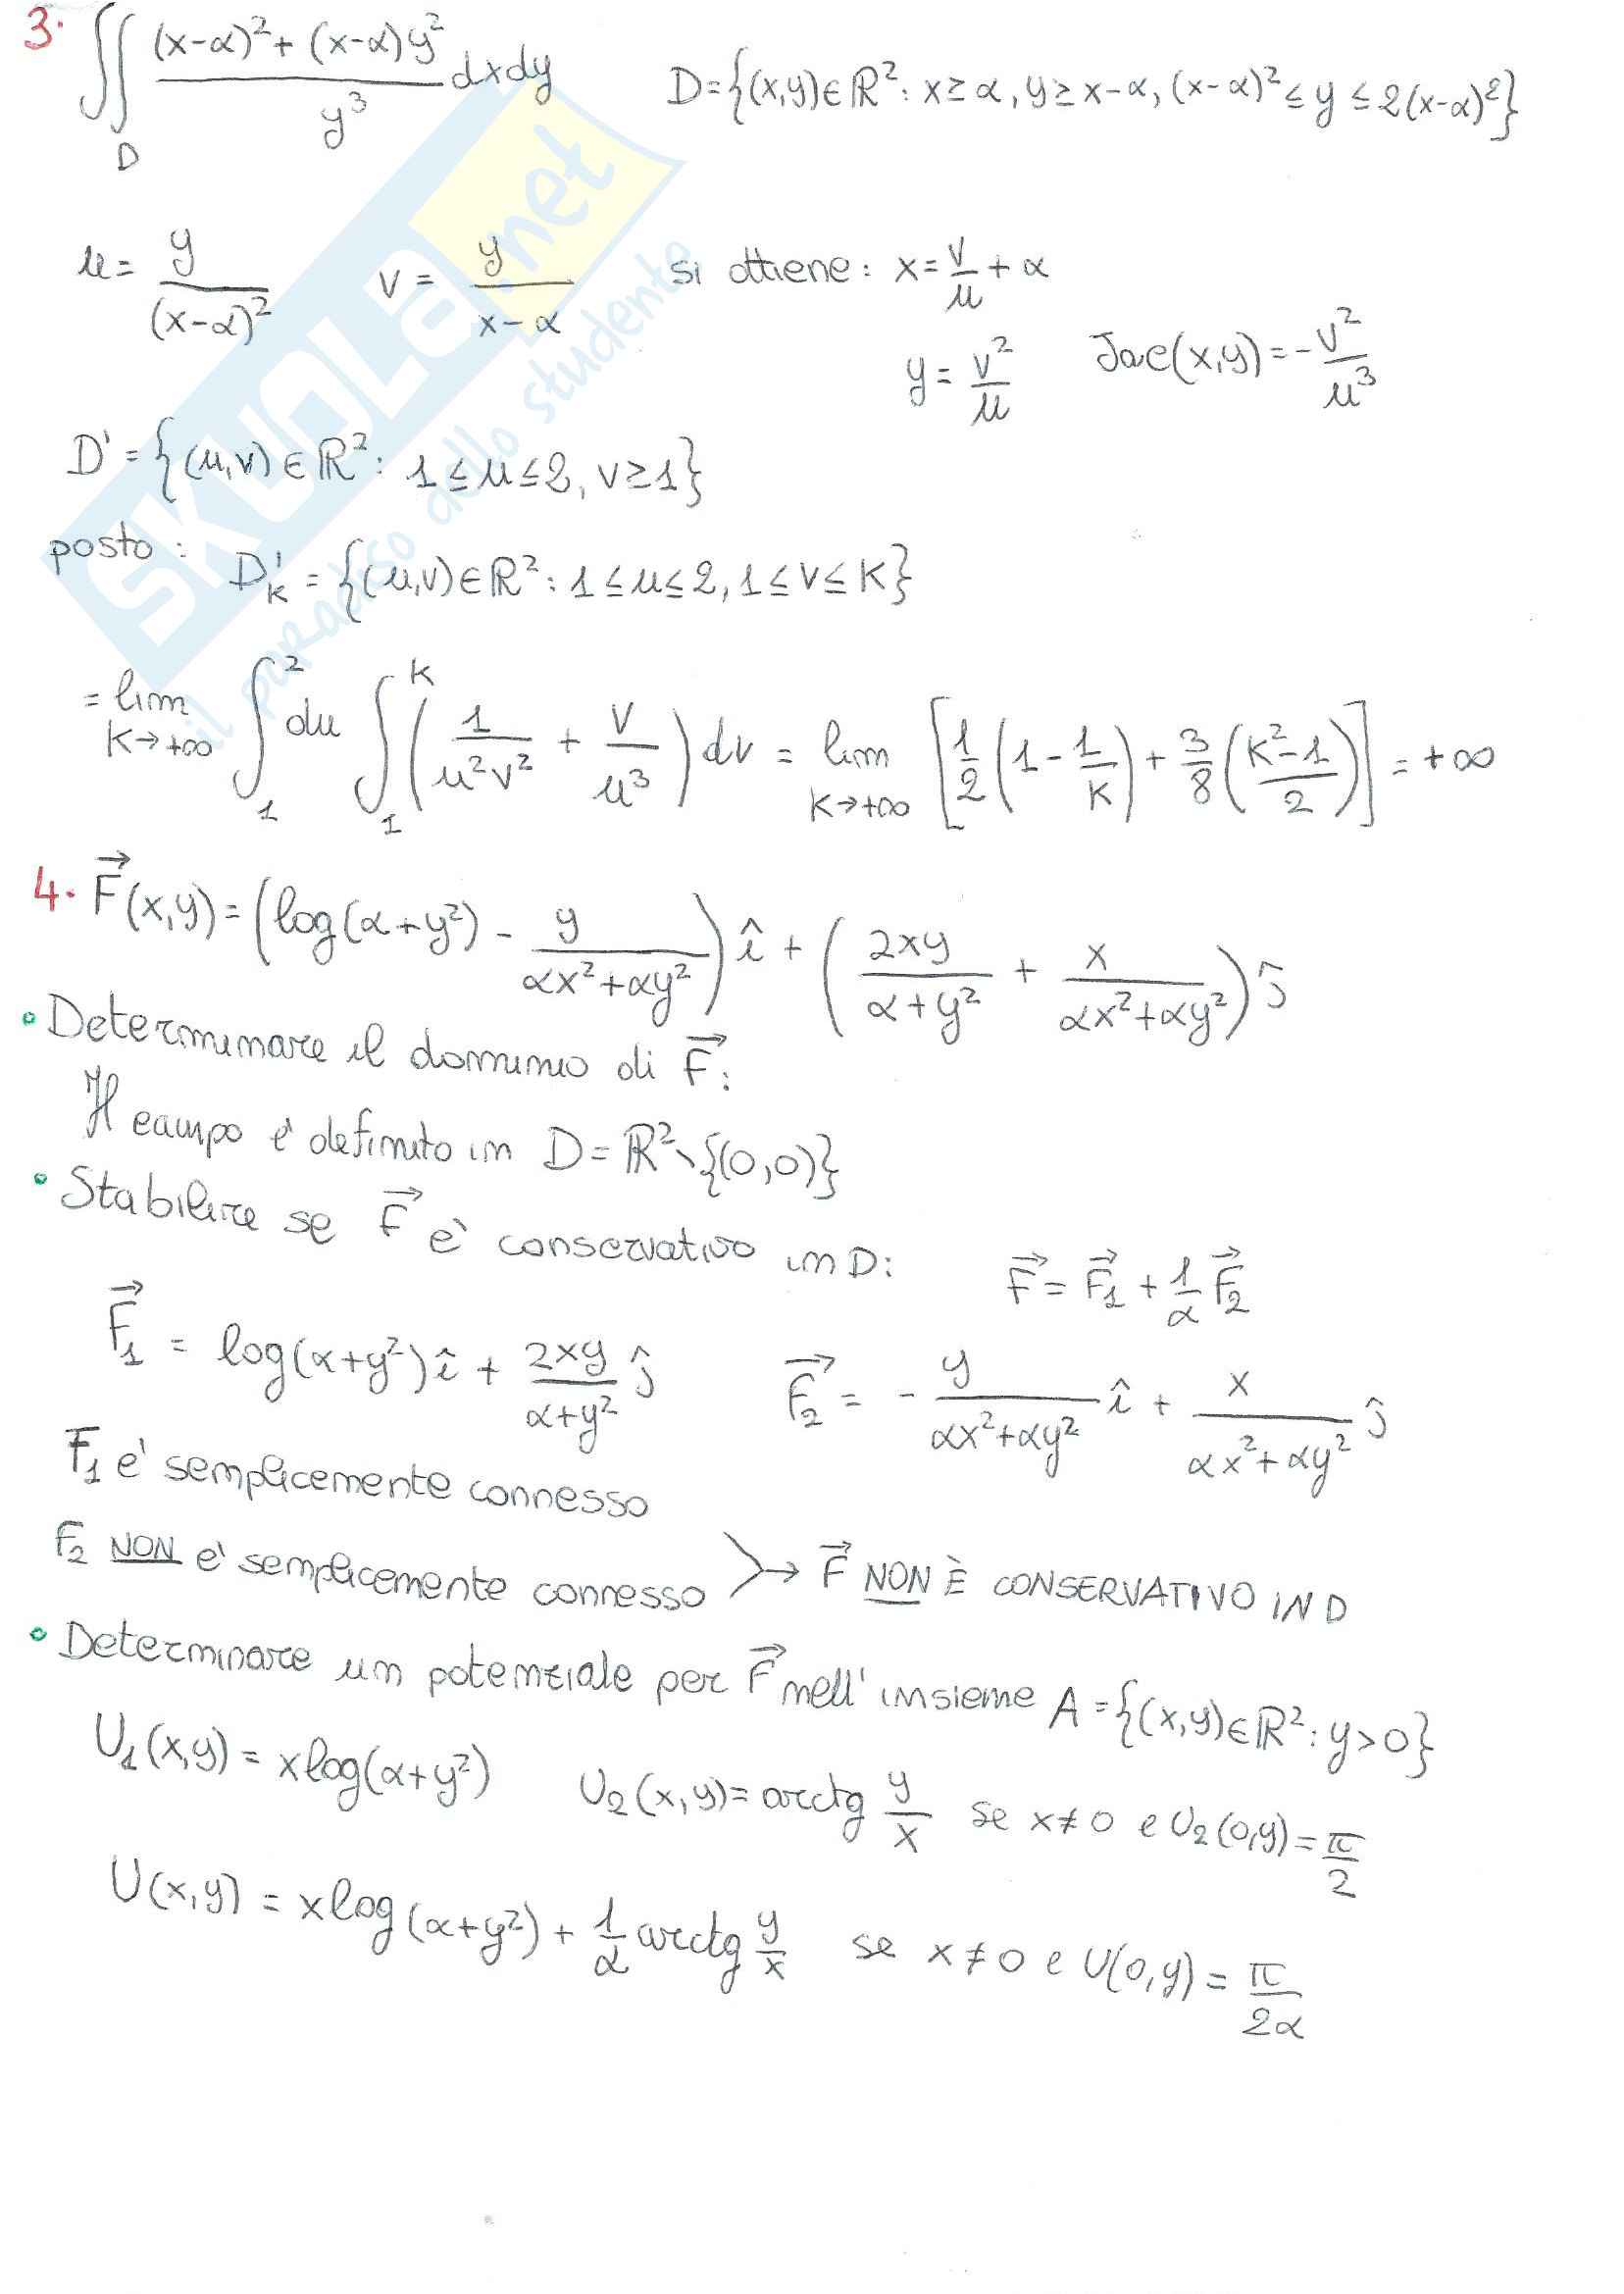 3. ∬_D ((x-α)²+(x-α)y²)/y³ dxdy D={(x,y)∈ℝ²: x≥α, y≥x-α, (x-α)²≤y≤2(x-α)²}
u= y/(x-α)² v= y/(x-α) si ottiene: x=v/u+α
y=v²/u Jac(x,y)=-v²/u³
D'={(u,v)∈ℝ²: 1≤u≤2, v≥1}
posto: D'_k={(u,v)∈ℝ²: 1≤u≤2, 1≤v≤k}
=lim_{k→+∞} ∫_1^2 du ∫_1^k (1/(u²v²) + v/u³) dv = lim_{k→+∞} [1/2(1-1/k)+3/8((k²-1)/2)]=+∞
4. F⃗(x,y)=(log(α+y²)-y/(αx²+αy²))î+(2xy/(α+y²)+x/(αx²+αy²))ĵ
• Determinare il dominio di F⃗:
Il campo è definito in D=ℝ²∖{(0,0)}
• Stabilire se F⃗ è conservativo in D: F⃗=F⃗₁+1/α F⃗₂
F⃗₁ = log(α+y²)î+2xy/(α+y²) ĵ F⃗₂= -y/(αx²+αy²) î+x/(αx²+αy²) ĵ
F₁ è semplicemente connesso
F₂ NON è semplicemente connesso → F⃗ NON È CONSERVATIVO IN D
• Determinare un potenziale per F⃗ nell'insieme A={(x,y)∈ℝ²: y>0}
U₁(x,y)=xlog(α+y²) U₂(x,y)=arctg y/x se x≠0 e U₂(0,y)=π/2
U(x,y)=xlog(α+y²)+1/α arctg y/x se x≠0 e U(0,y)=π/2α
SKUOLA.net
il paradiso dello studente